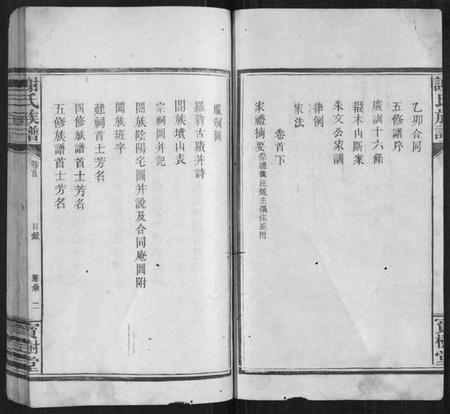 乙卯合同
五修譜序
廣訓十六條
報本山斷案
朱文公家訓
律例
家法
卷首下
家禮摘要祭禮儀注題主儀注並附
服制圖
羅翁古蹟并詩
闔族墳山表
宗祠圖并記
闔族陰陽宅圖并說及合同庵圖附
闔族班字
建祠首士芳名
四修族譜首士芳名
五修族譜首士芳名
謝氏族譜
卷首
目錄
二
寶樹堂